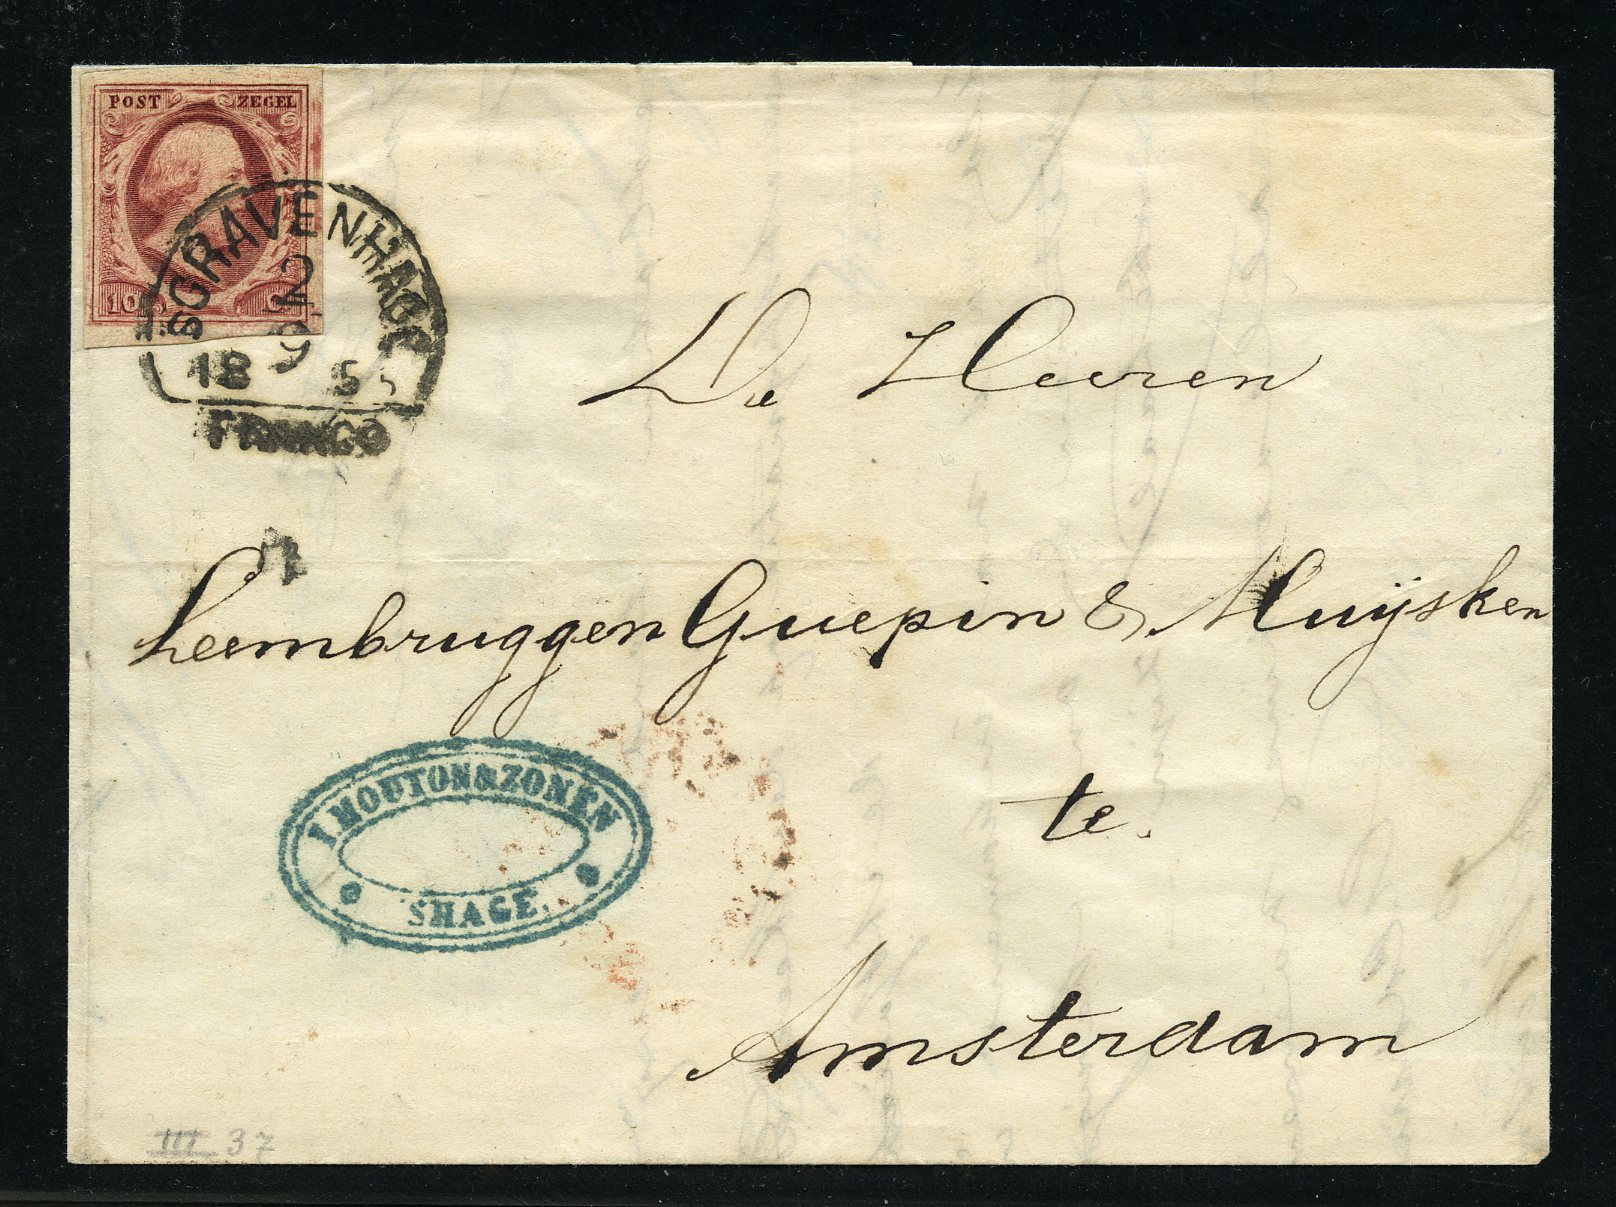 POST ZEGEL
10
SGRAVENHAGE
2
9
18 55
FRANCO
De Heeren
Leembruggen Guepin & Muijsken
te
Amsterdam
I. MOUTON & ZONEN
SHAGE.
III 37